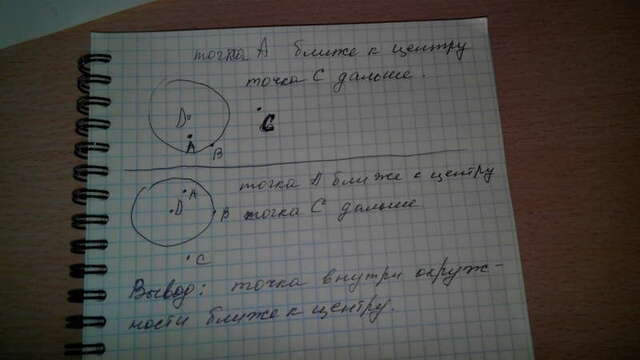 точка А ближе к центру
точка С дальше.
D
C
A
B
точка А ближе к центру
A
D
B
точка С дальше
C
Вывод: точка внутри окруж-
ности ближе к центру.